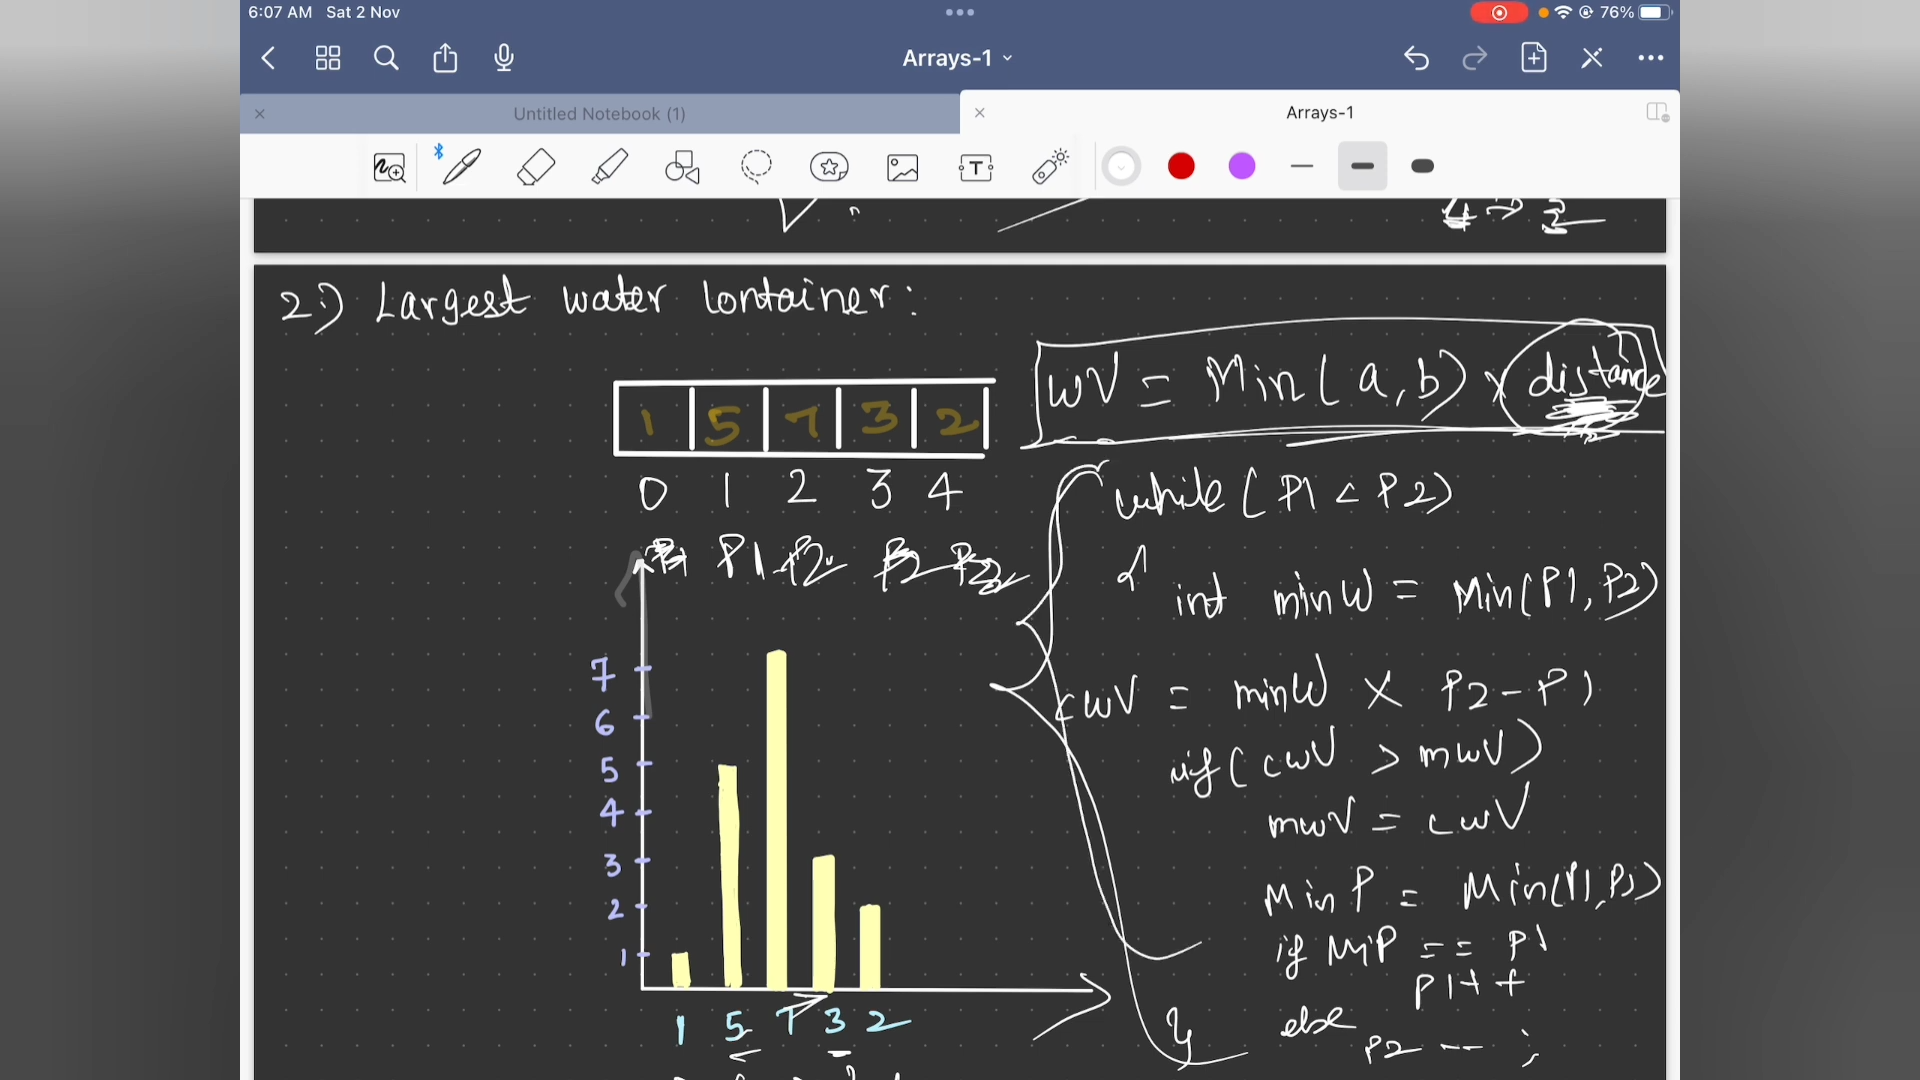 6:07 AM Sat 2 Nov
76%
Arrays-1
Untitled Notebook (1)
Arrays-1
T
2.) Largest water Container:
1 5 7 3 2
0 1 2 3 4
P1 P2 P2 P2
WV = Min( a, b) x distance
while ( P1 < P2)
{
int minW = Min(P1, P2)
CWV = minW X P2-P1
if( CWV > mWV)
mWV = CWV
Min P = Min(P1, P2)
if MiP == P1
P1++
else
P2 -- ;
}
7
6
5
4
3
2
1
1 5 7 3 2